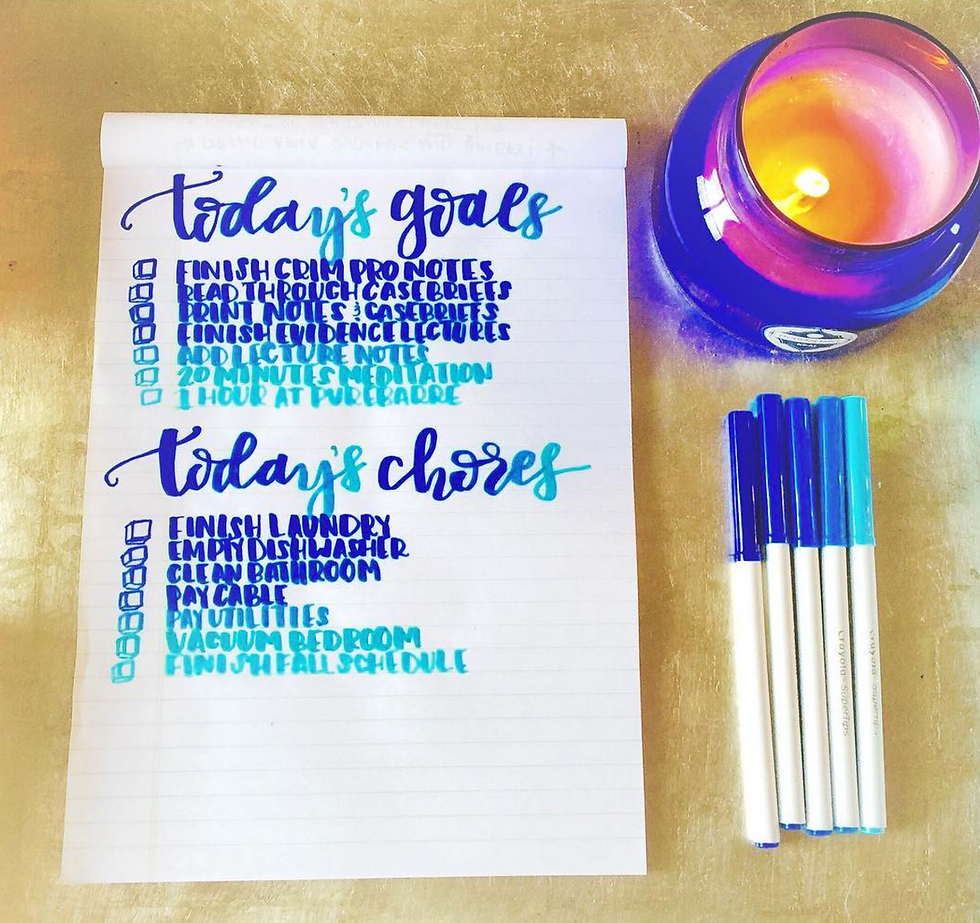 today's goals
FINISH CRIM PRO NOTES
READ THROUGH CASEBRIEFS
PRINT NOTES & CASEBRIEFS
FINISH EVIDENCE LECTURES
ADD LECTURE NOTES
20 MINUTES MEDITATION
1 HOUR AT PUREBARRE
today's chores
FINISH LAUNDRY
EMPTY DISHWASHER
CLEAN BATHROOM
PAY CABLE
PAY UTILITIES
VACUUM BEDROOM
FINISH FALL SCHEDULE
Crayola SuperTips
Crayola SuperTips